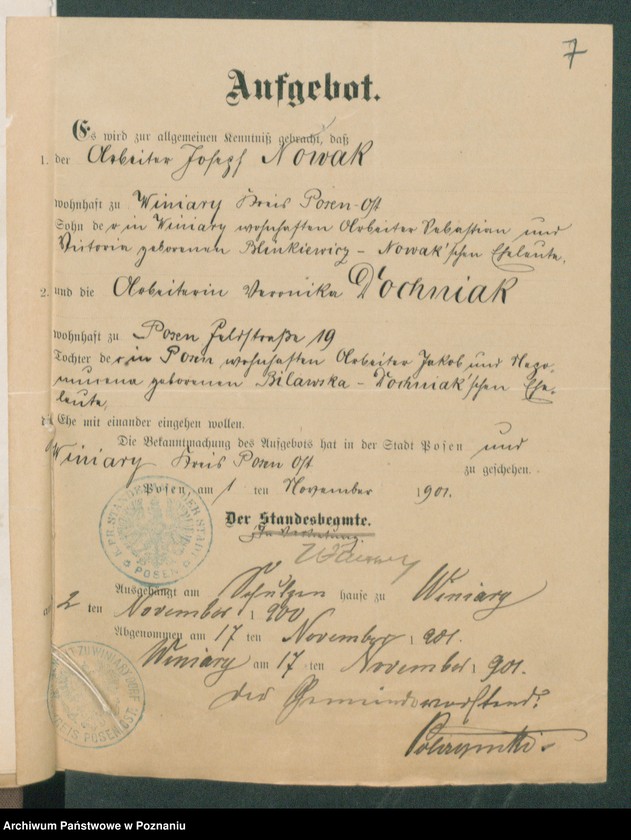 7
Aufgebot.
Es wird zur allgemeinen Kenntniß gebracht, daß
1. der Arbeiter Joseph Nowak
wohnhaft zu Winiary Kreis Posen-Ost
Sohn der in Winiary wohnhaften Arbeiter Sebastian und
Victoria geborenen Blinkiewicz - Nowak'schen Eheleute.
2. und die Arbeiterin Veronika Dochniak
wohnhaft zu Posen Feldstraße 19
Tochter der in Posen wohnhaften Arbeiter Jakob und Nepo-
mucena geborenen Bilawska - Dochniak'schen Ehe-
leute,
die Ehe mit einander eingehen wollen.
Die Bekanntmachung des Aufgebots hat in der Stadt Posen und
Winiary Kreis Posen Ost zu geschehen.
Posen am 1 ten November 1901.
Der Standesbeamte.
In Vertretung.
Ausgehängt am Schulzen hause zu Winiary
am 2 ten November 1900
Abgenommen am 17 ten November 1901.
Winiary am 17 ten November 1901.
Der Gemeindevorstand.
POSEN
KREIS POSEN OST.
Archiwum Państwowe w Poznaniu